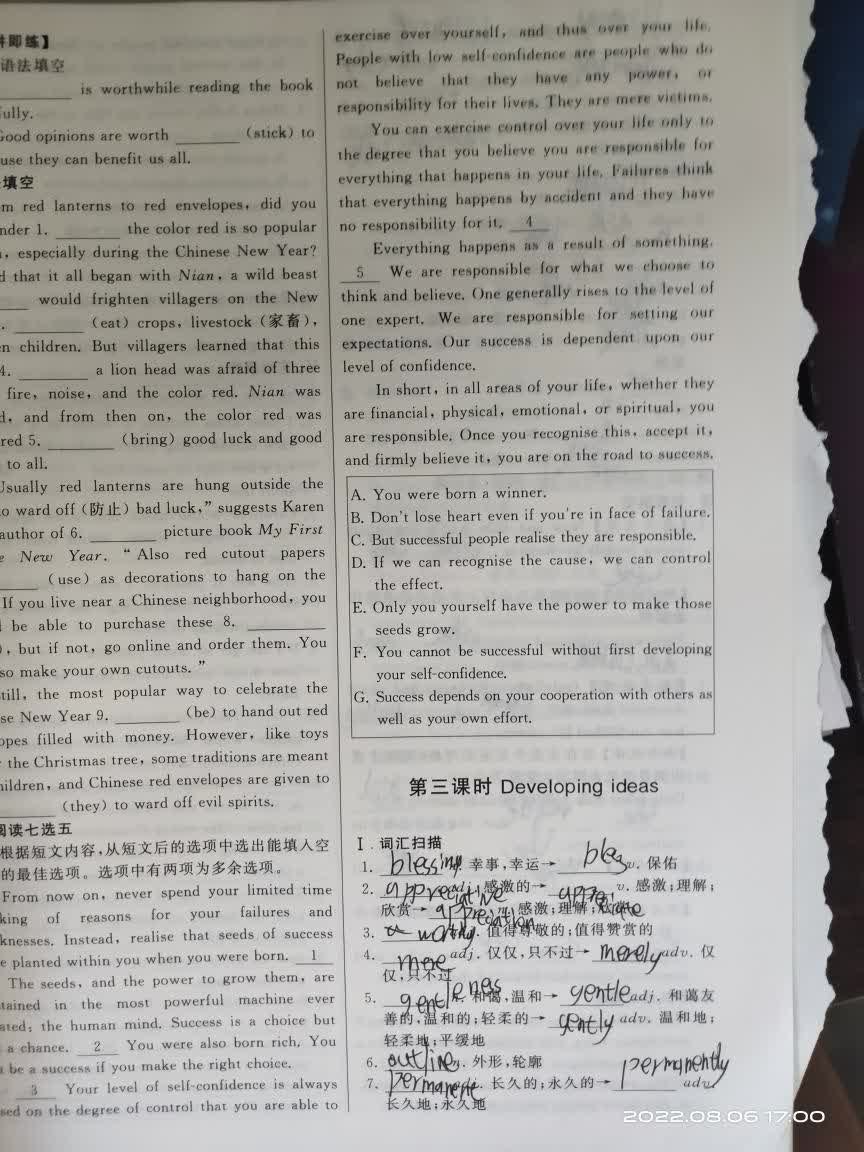 讲即练】
语法填空
is worthwhile reading the book
fully.
Good opinions are worth ______ (stick) to
use they can benefit us all.
填空
m red lanterns to red envelopes, did you
nder 1. ______ the color red is so popular
, especially during the Chinese New Year?
d that it all began with Nian, a wild beast
would frighten villagers on the New
. ______ (eat) crops, livestock (家畜),
n children. But villagers learned that this
4. ______ a lion head was afraid of three
fire, noise, and the color red. Nian was
d, and from then on, the color red was
red 5. ______ (bring) good luck and good
to all.
Usually red lanterns are hung outside the
o ward off (防止) bad luck,” suggests Karen
author of 6. ______ picture book My First
e New Year. “Also red cutout papers
(use) as decorations to hang on the
If you live near a Chinese neighborhood, you
be able to purchase these 8. ______
), but if not, go online and order them. You
so make your own cutouts.”
till, the most popular way to celebrate the
se New Year 9. ______ (be) to hand out red
opes filled with money. However, like toys
the Christmas tree, some traditions are meant
hildren, and Chinese red envelopes are given to
(they) to ward off evil spirits.
阅读七选五
根据短文内容,从短文后的选项中选出能填入空
的最佳选项。选项中有两项为多余选项。
From now on, never spend your limited time
king of reasons for your failures and
knesses. Instead, realise that seeds of success
e planted within you when you were born. 1
The seeds, and the power to grow them, are
tained in the most powerful machine ever
ated: the human mind. Success is a choice but
a chance. 2 You were also born rich. You
be a success if you make the right choice.
3 Your level of self-confidence is always
sed on the degree of control that you are able to
exercise over yourself, and thus over your life.
People with low self-confidence are people who do
not believe that they have any power, or
responsibility for their lives. They are mere victims.
You can exercise control over your life only to
the degree that you believe you are responsible for
everything that happens in your life. Failures think
that everything happens by accident and they have
no responsibility for it. 4
Everything happens as a result of something.
5 We are responsible for what we choose to
think and believe. One generally rises to the level of
one expert. We are responsible for setting our
expectations. Our success is dependent upon our
level of confidence.
In short, in all areas of your life, whether they
are financial, physical, emotional, or spiritual, you
are responsible. Once you recognise this, accept it,
and firmly believe it, you are on the road to success.
A. You were born a winner.
B. Don't lose heart even if you're in face of failure.
C. But successful people realise they are responsible.
D. If we can recognise the cause, we can control
the effect.
E. Only you yourself have the power to make those
seeds grow.
F. You cannot be successful without first developing
your self-confidence.
G. Success depends on your cooperation with others as
well as your own effort.
第三课时 Developing ideas
Ⅰ. 词汇扫描
1. blessing n. 幸事,幸运→ bless v. 保佑
2. appreciative adj. 感激的→ v. 感激;理解;
欣赏→ appreciation n. 感激;理解;欣赏
3. worthy 值得尊敬的;值得赞赏的
4. mere adj. 仅仅,只不过→ merely adv. 仅
仅,只不过
5. gentleness 和蔼,温和→ gentle adj. 和蔼友
善的,温和的;轻柔的→ gently adv. 温和地;
轻柔地;平缓地
6. outline n. 外形,轮廓
7. permanent adj. 长久的;永久的→ permanently adv.
长久地;永久地
2022.08.06 17:00